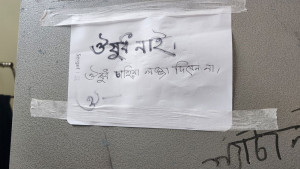 ঔষুধ নাই।
ঔষুধ চাহিয়া লজ্জা দিবেন না।